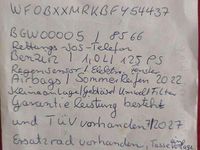 WF0BXXMRKBFY54437
BGW00005 / 8566
Rettungs-SOS-Telefon
Benzin / 1,0L / 125 PS
Regensensor / Elektro Fenster
Airbags / Sommerreifen 2022
Klimaanlage / Umwelt
Garantieleistung besteht
und TÜV vorhanden 7/2027
Ersatzrad vorhanden,